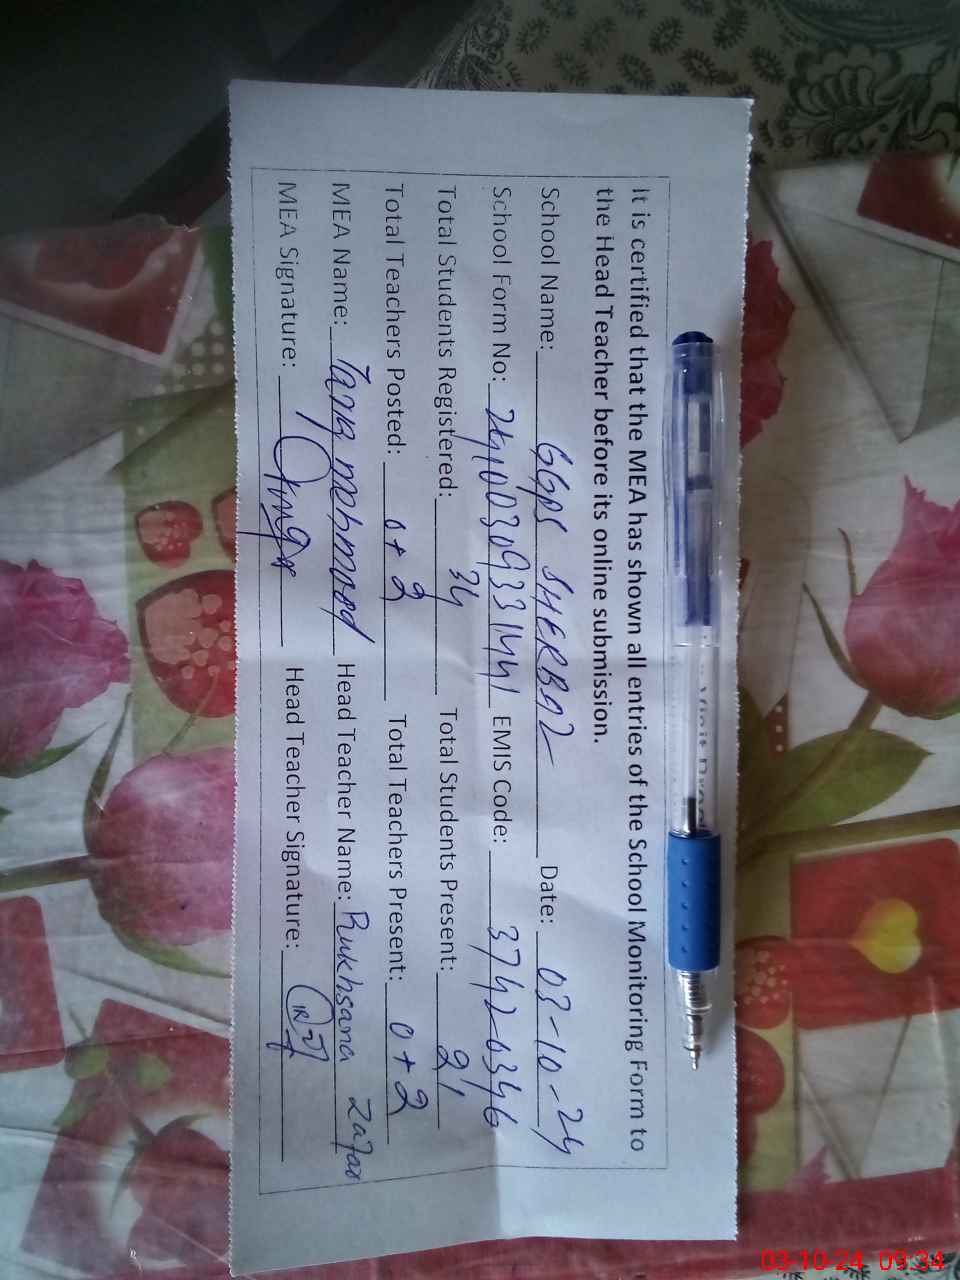 It is certified that the MEA has shown all entries of the School Monitoring Form to
the Head Teacher before its online submission.
School Name: GGPS SHERBAZ Date: 03-10-24
School Form No: EMIS Code: 37420346
Total Students Registered: 34 Total Students Present: 21
Total Teachers Posted: 0+2 Total Teachers Present: 0+2
MEA Name: mehmood Head Teacher Name: Rukhsana Zafar
MEA Signature: Head Teacher Signature:
03-10-24 09:34